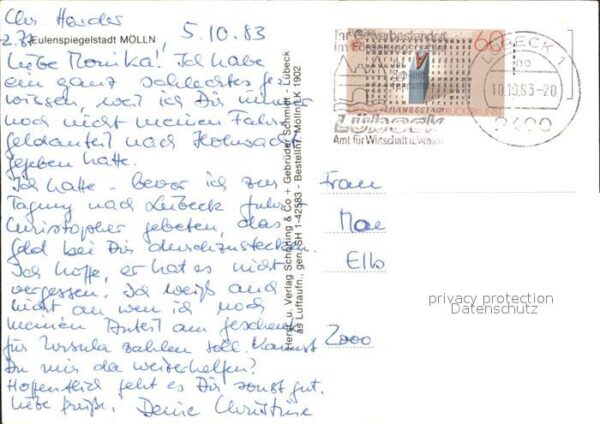 Chr. Harder
5.10.83
z.Zt. Eulenspiegelstadt MÖLLN
Liebe Monika! Ich habe
ein ganz schlechtes Ge-
wissen, weil ich Dir immer
noch nicht meinen Fahr-
geldanteil nach
gegeben hatte.
Ich hatte - bevor ich zur
Tagung nach Lübeck fuhr,
Christopher gebeten, das
Geld bei Dir durchzustecken.
Ich hoffe, er hat es nicht
vergessen. Ich weiß auch
nicht an wen ich noch
meinen Anteil am Geschenk
für Ursula zahlen soll. Kannst
Du mir da weiterhelfen?
Hoffentlich geht es Dir sonst gut.
Liebe Grüße, Deine Christine
Herst. u. Verlag Schöning & Co + Gebrüder Schmidt - Lübeck
as Luftaufn., gen. SH 1-42583 - Bestellnr. Mölln LK 1902
60
LÜBECK 1
10.10.83-20
2400
Lübeck
Amt für Wirtschaft u. Verkehr
Frau
Elb
2000
privacy protection
Datenschutz